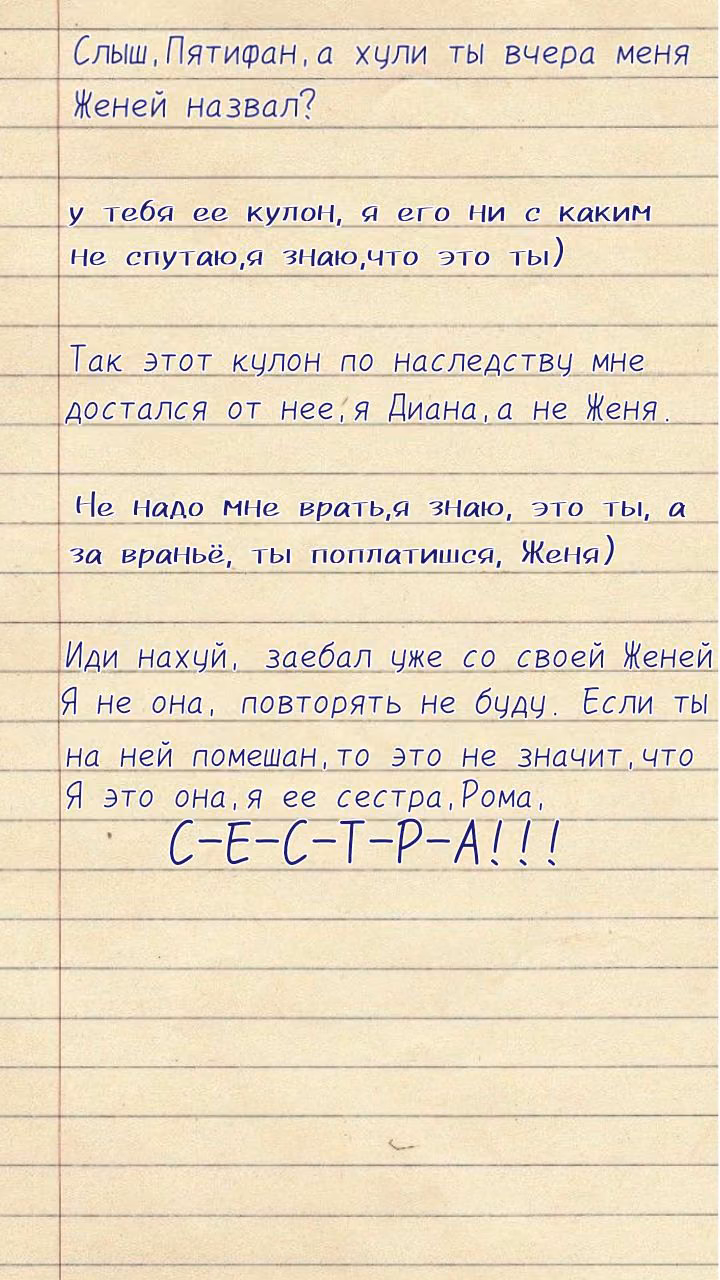 Слыш,Пятифан,а хули ты вчера меня
Женей назвал?
у тебя ее кулон, я его ни с каким
не спутаю,я знаю,что это ты)
Так этот кулон по наследству мне
достался от нее,я Диана,а не Женя.
Не надо мне врать,я знаю, это ты, а
за враньё, ты поплатишся, Женя)
Иди нахуй, заебал уже со своей Женей
Я не она, повторять не буду. Если ты
на ней помешан,то это не значит,что
Я это она,я ее сестра,Рома,
С-Е-С-Т-Р-А!!!